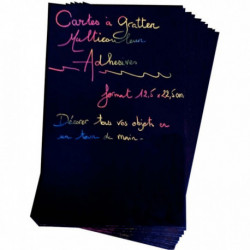 Cartes à gratter
Multicouleur
Adhesives
format 12,5 x 22,5 cm
Décorer tous vos objets en
un tour de main.